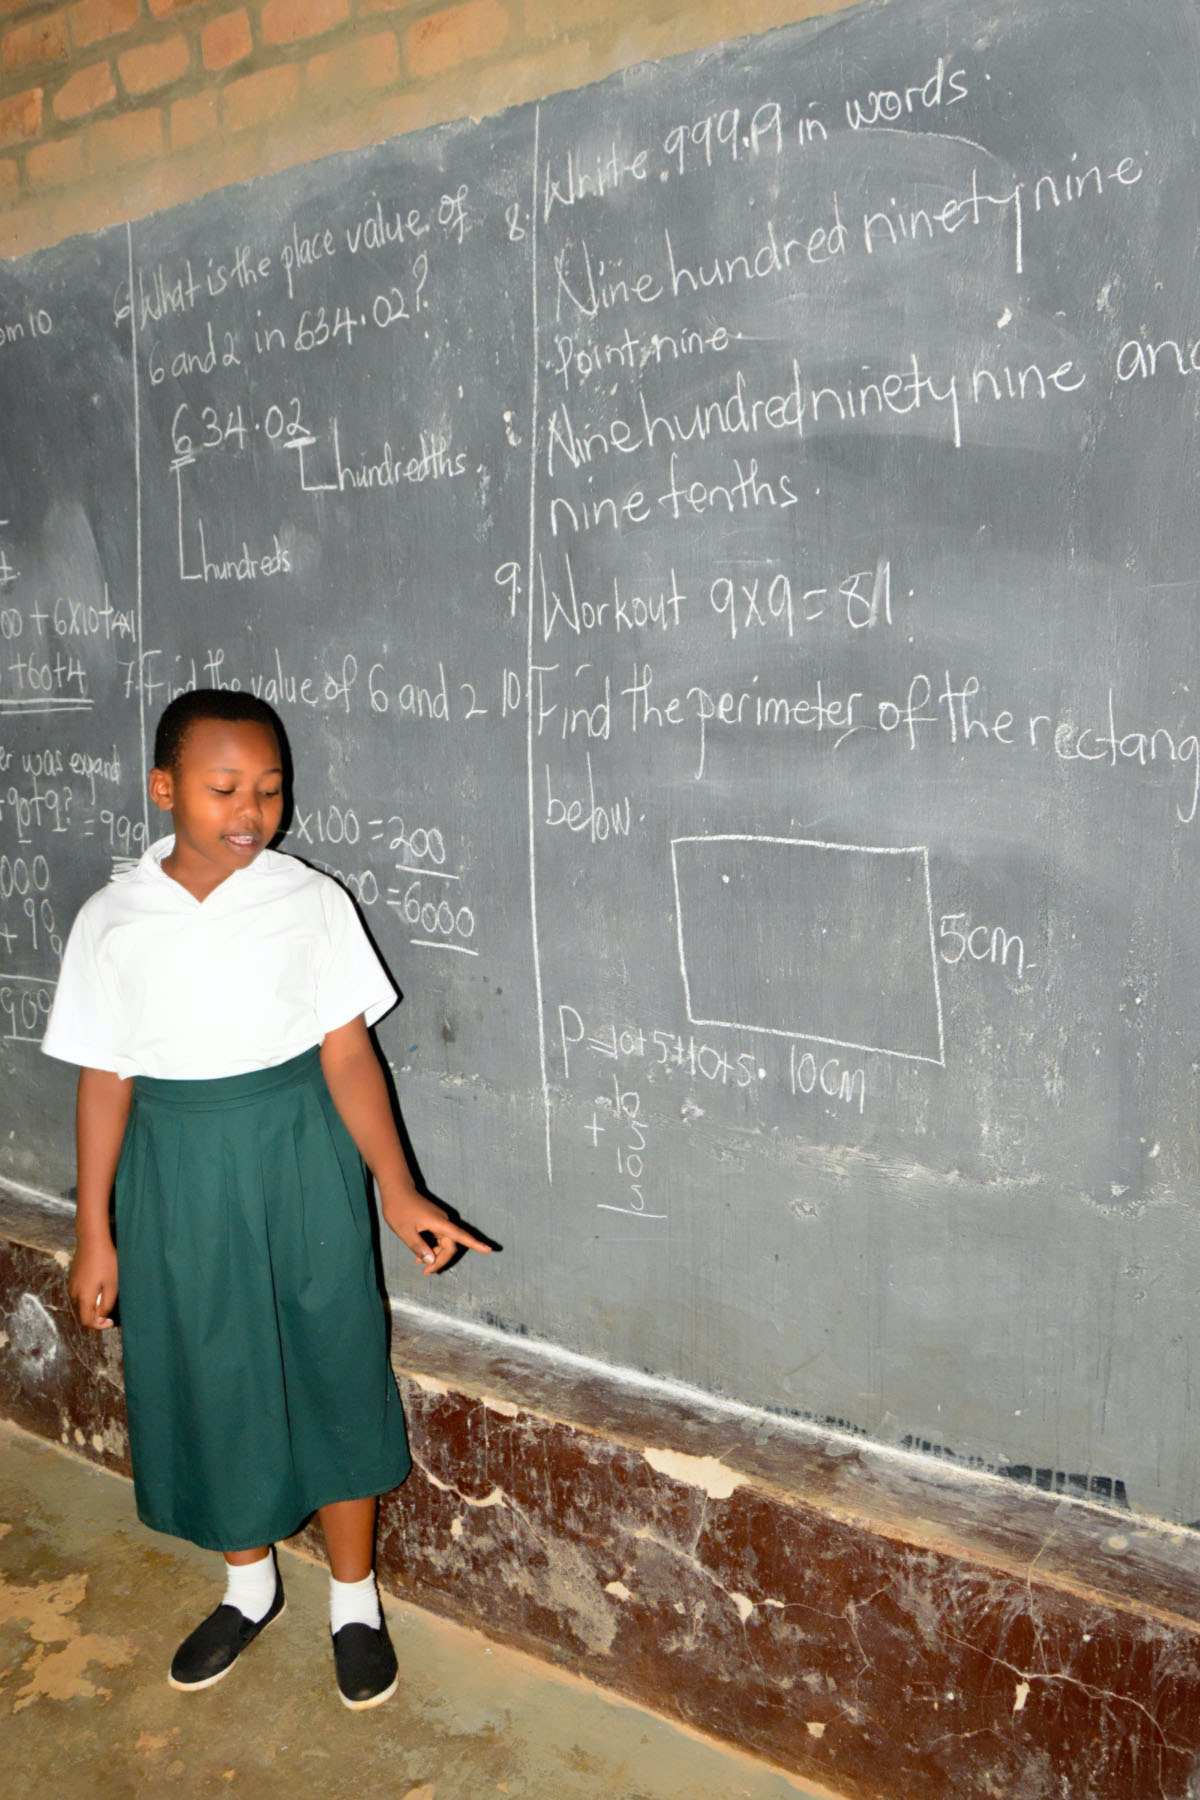 om10
00 + 6x10+4x1
+60+4
er was expand
+90+9? = 999
000
90
+ 9
909
6. What is the place value of
6 and 2 in 634.02?
634.02
hundredths.
hundreds
7. Find the value of 6 and 2
x100 = 200
000 = 6000
8. Write 999.9 in words.
Nine hundred ninety nine
point nine.
Nine hundred ninety nine and
nine tenths.
9. Workout 9x9 = 81.
10. Find the perimeter of the rectang
below.
5cm
P = 10+5+10+5. 10cm
10
+ 5
10
5